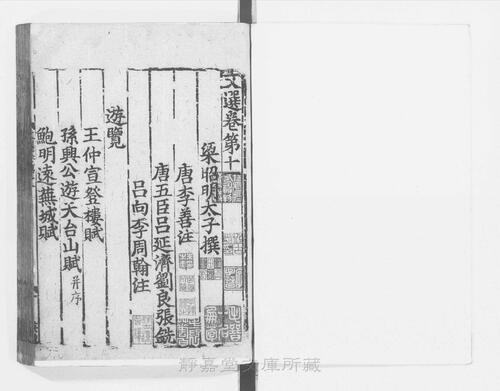 文選卷第十一
梁昭明太子撰
唐李善注
唐五臣呂延濟劉良張銑
呂向李周翰注
遊覽
王仲宣登樓賦
孫興公遊天台山賦并序
鮑明遠蕪城賦
靜嘉堂文庫所藏